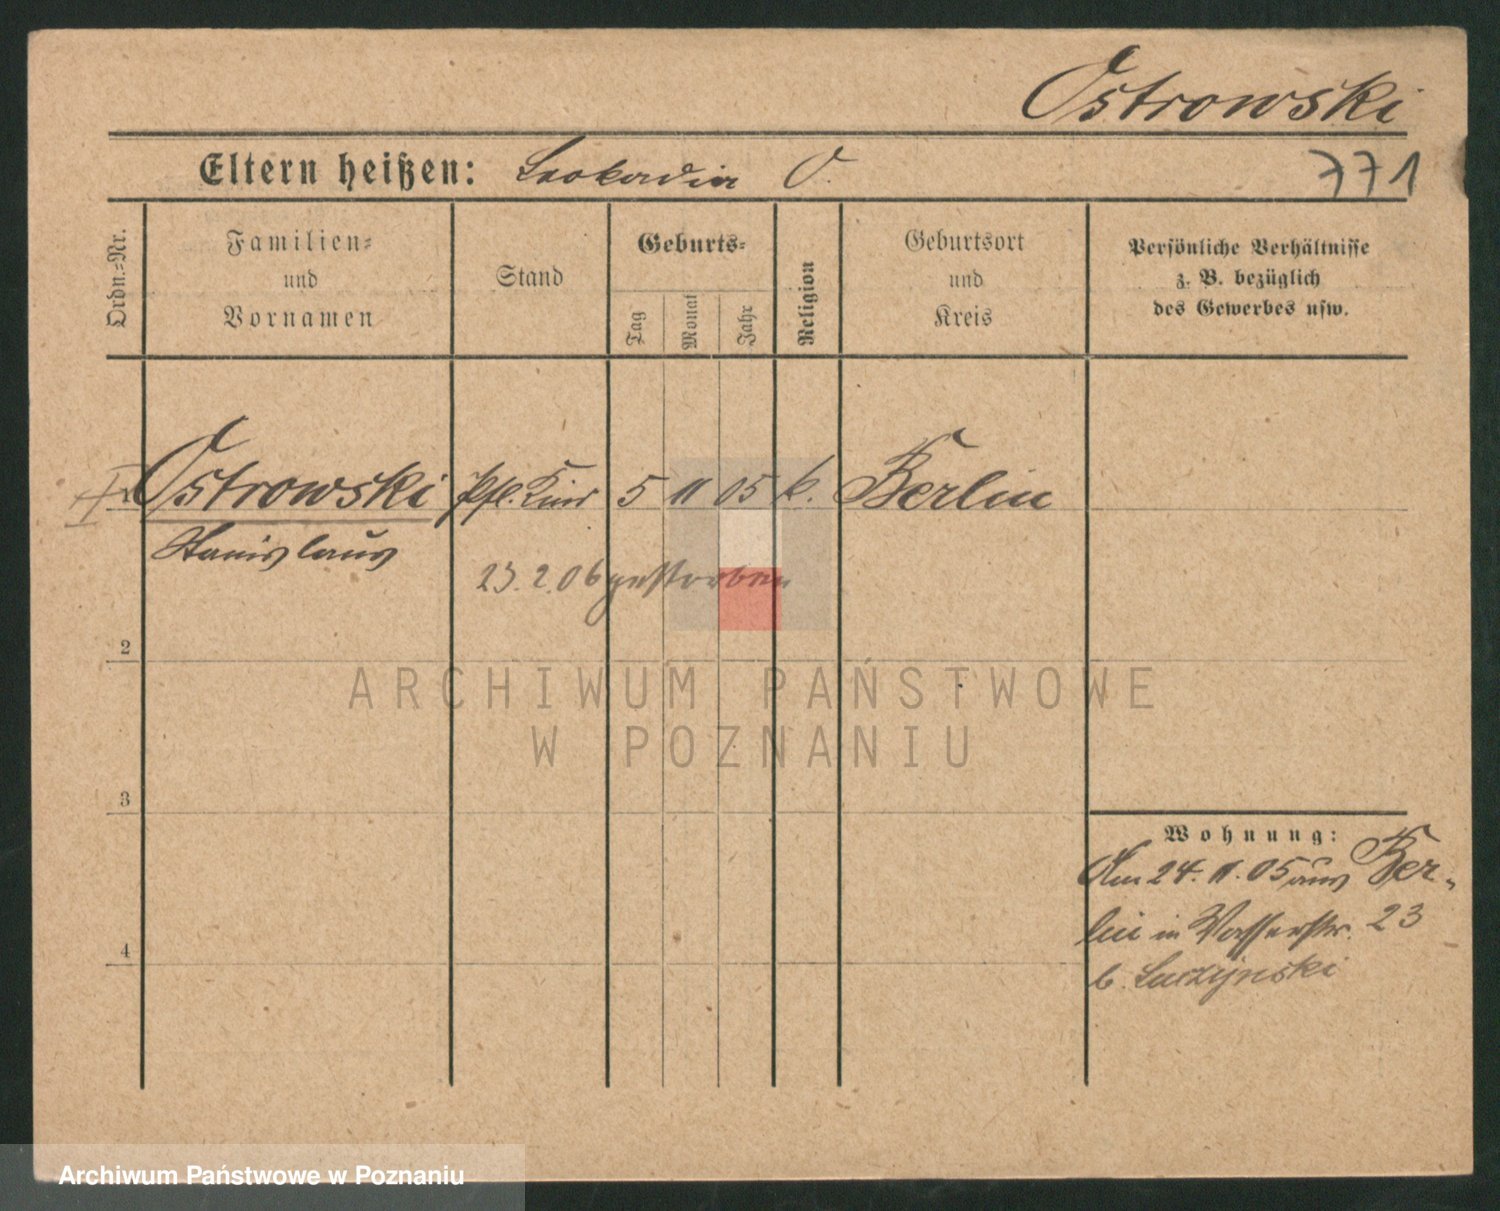 Ostrowski
Eltern heißen: Leokadia O.
771
Ordn.=Nr.
Familien=
und
Vornamen
Stand
Geburts=
Tag
Monat
Jahr
Religion
Geburtsort
und
Kreis
Persönliche Verhältnisse
z. B. bezüglich
des Gewerbes usw.
Ostrowski Pfl. Kind 5 11 05 k. Berlin
Stanislaus
23. 2. 06 gestorben
2
3
4
Wohnung:
Am 24. 11. 05 aus Ber-
lin in Wasserstr. 23
b. Luczynski
ARCHIWUM PAŃSTWOWE
W POZNANIU
Archiwum Państwowe w Poznaniu